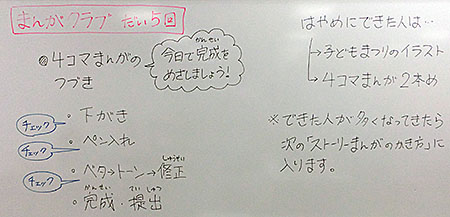 まんがクラブ だい5回
◎4コマまんがの
つづき
かんせい
今日で完成を
めざしましょう!
チェック
・下がき
チェック
・ペン入れ
チェック
しゅうせい
・ベタ→トーン→修正
かんせい ていしゅつ
・完成・提出
はやめにできた人は…
→子どもまつりのイラスト
→4コマまんが2本め
※できた人が多くなってきたら
次の「ストーリーまんがのかき方」に
入ります。